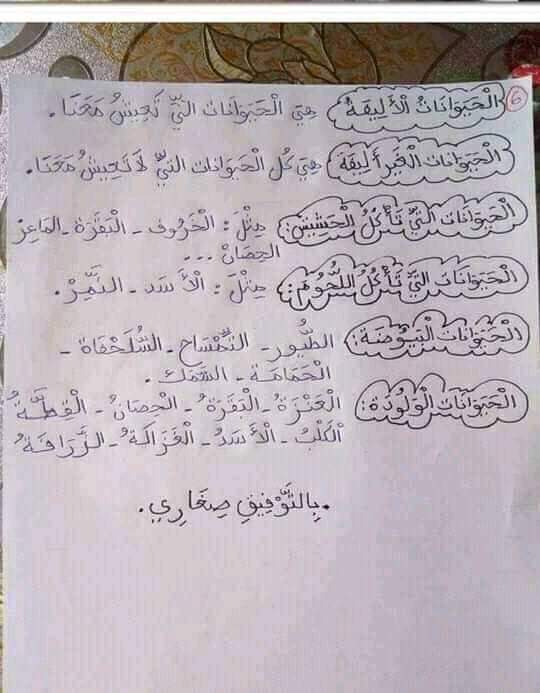 6 الْحَيَوَانَاتُ الْأَلِيفَةُ هِيَ الْحَيَوَانَاتُ التِّي تَعِيشُ مَعَنَا.
الْحَيَوَانَاتُ الْغَيْرُ أَلِيفَة هِيَ كُل الْحَيَوَانَات التِّي لَا تَعِيشُ مَعَنَا.
الْحَيَوَانَاتُ التِّي تَأْكُلُ الْحَشِيشَ: مِثْلَ: الْخَرُوف - الْبَقَرَة - المَاعِز
الحِصَانْ ...
الْحَيَوَانَات التِّي تَأْكُلُ اللُّحُومْ: مِثْلَ: الْأَسَد - النَّمِرْ.
الْحَيَوَانَاتُ الْبَيُوضَة: الطُّيُور - التِّمْسَاح - السُّلَحْفَاة -
الْحَمَامَة - السَّمَك.
الْحَيَوَانَاتُ الْوَلُودَة: الْعَنْزَةُ - الْبَقَرَةُ - الْحِصَانُ - الْقِطَّةُ
الْكَلْبُ - الْأَسَدُ - الْغَزَالَةُ - الزَّرَافَةُ
. بِالتَّوْفِيقِ صِغَارِي.